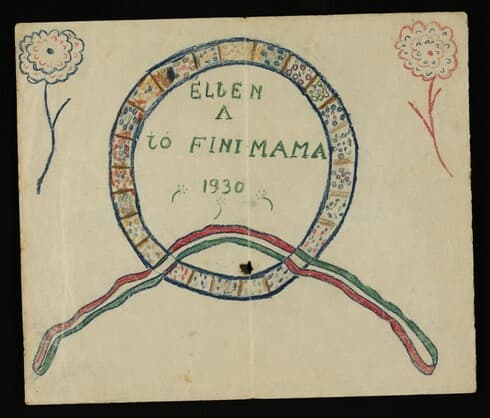 ÉLLEN
A
tó FINI-MAMA
1930